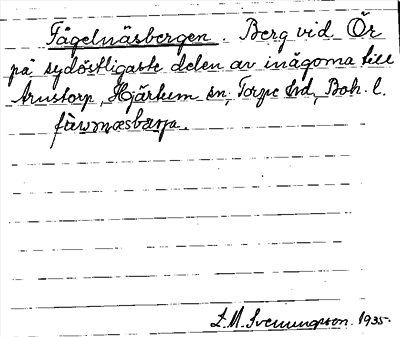 Fågelnäsbergen. Berg vid Ör
på sydöstligaste delen av inägorna till
Arnstorp, Hjärtum sn, Torpe hd, Boh. l.
L. M. Svenungsson. 1935.